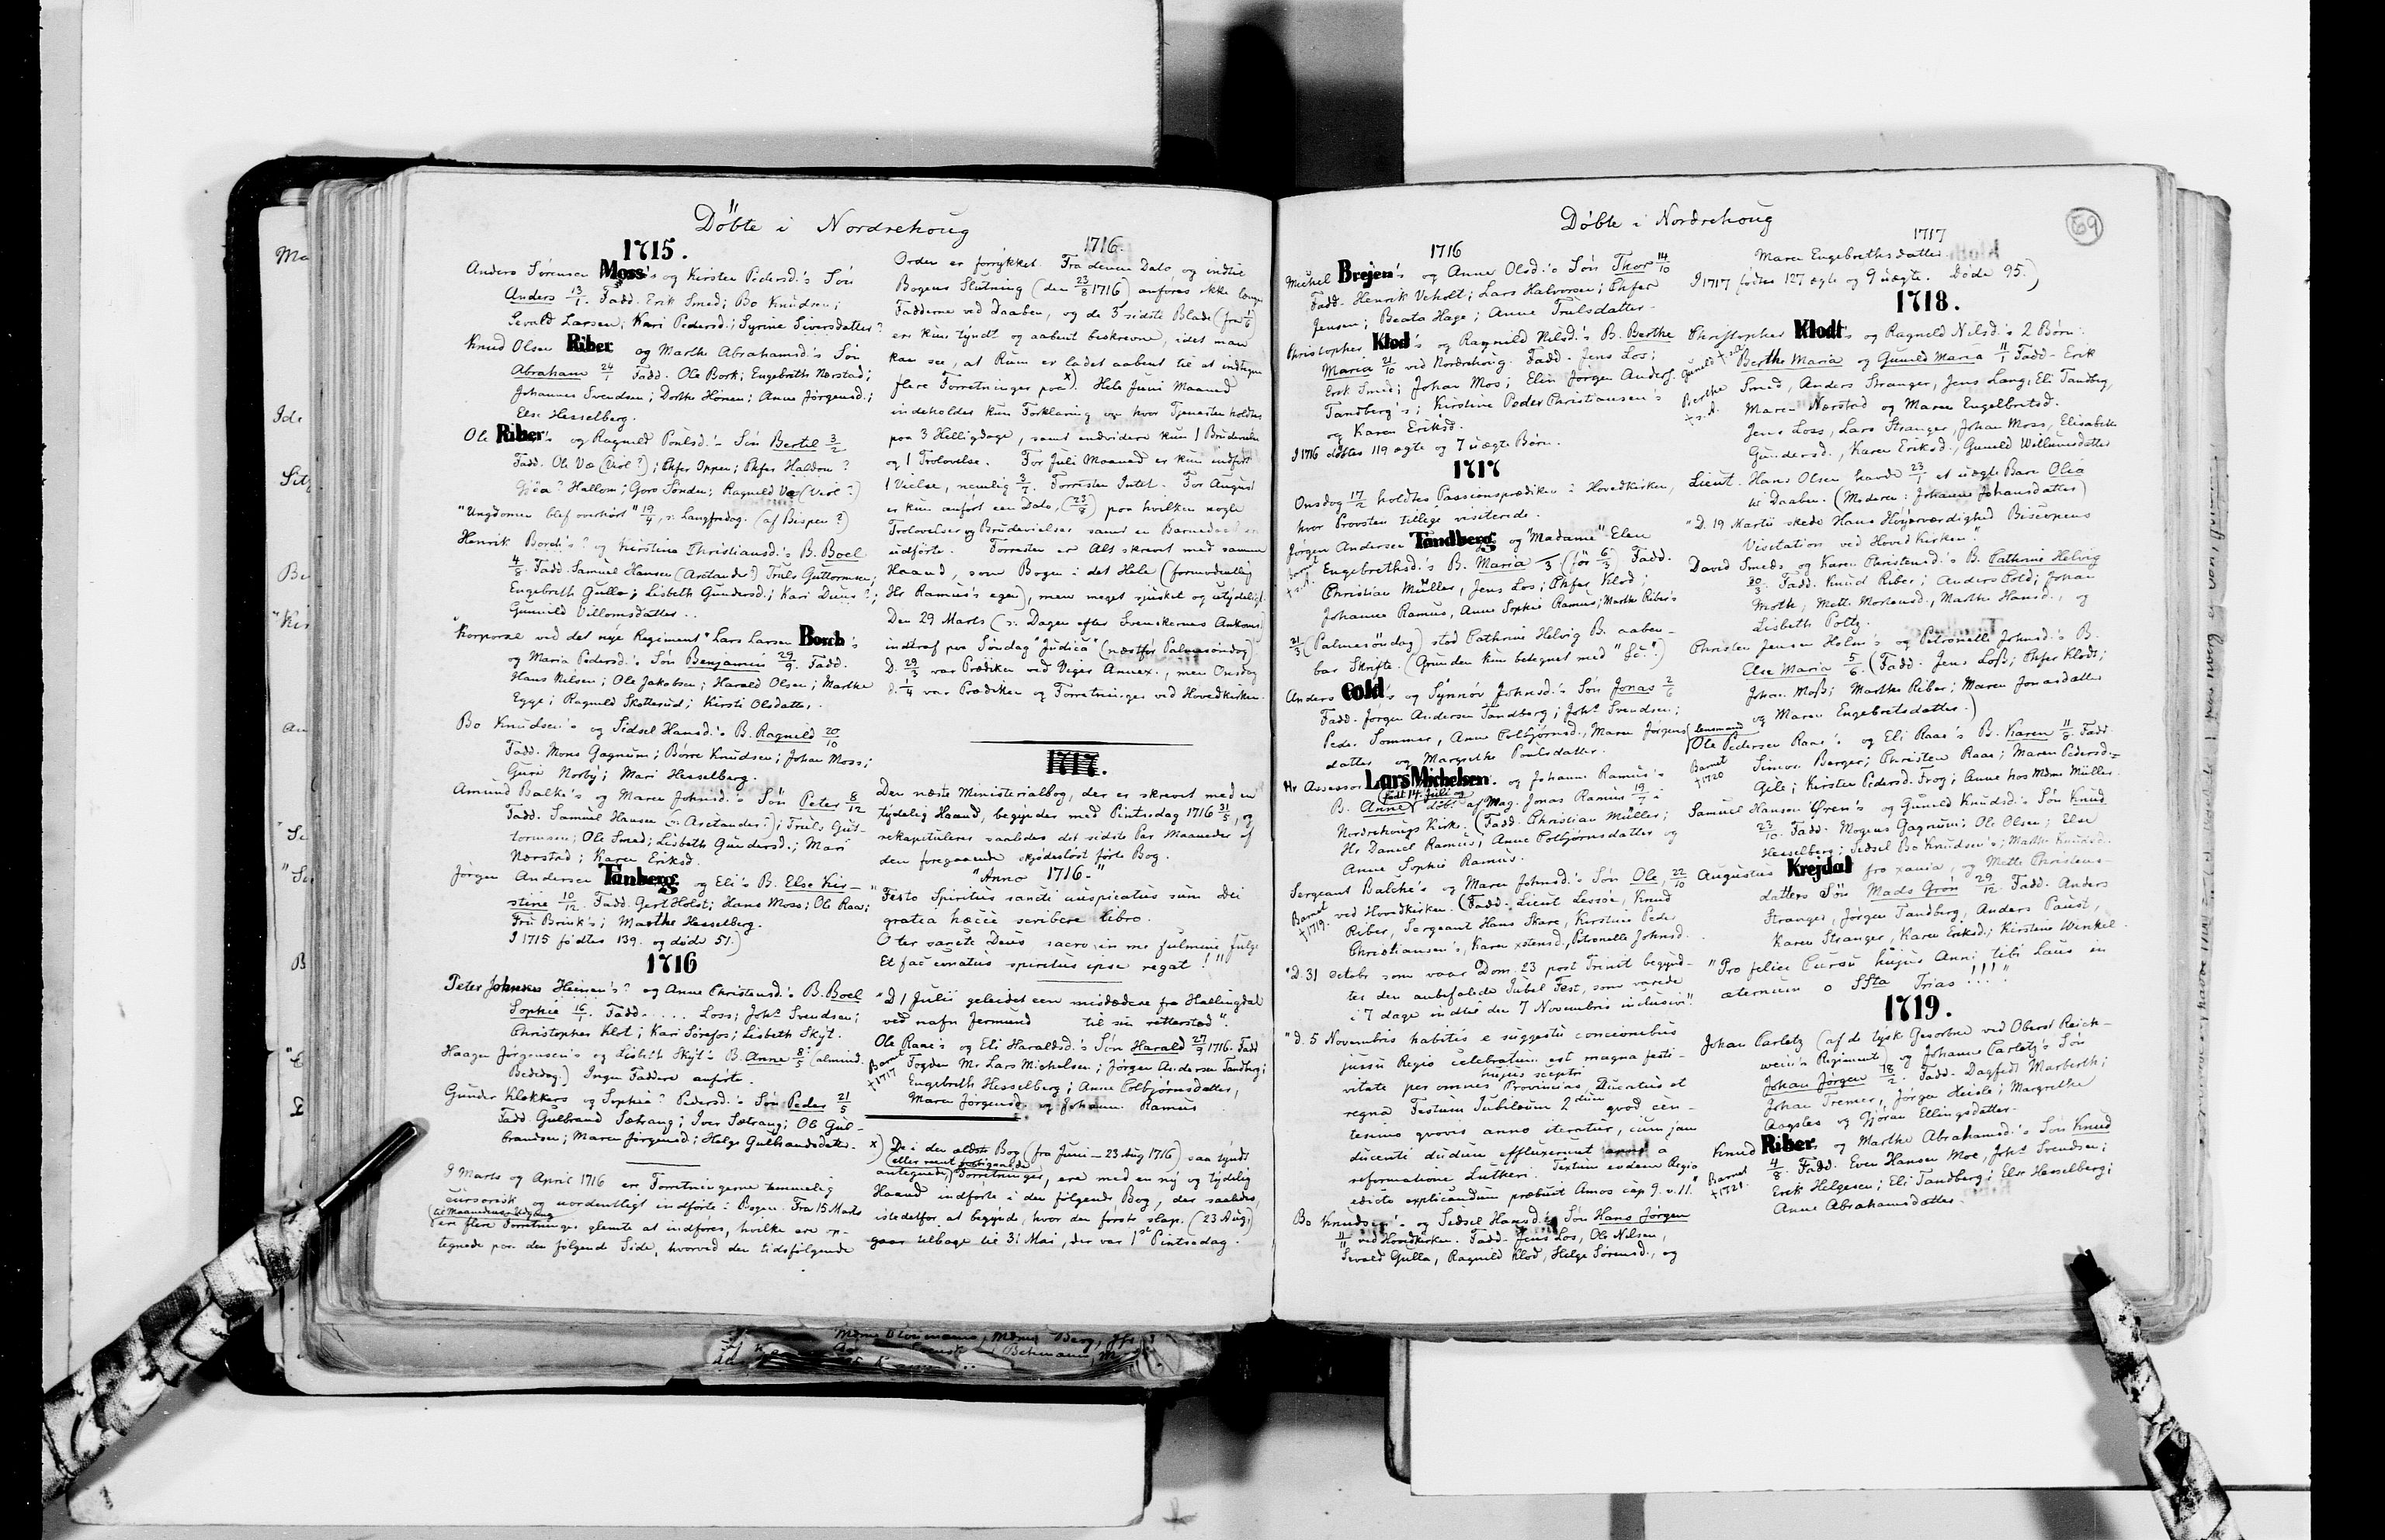 Döbte i Nordrehoug
1715.
Anders Sörensen Moss's og Kirsten Pedersd.'s Sön
Anders 13/1. Fadd. Erik Smed; Bo Knudsen;
Sevald Larsen; Kari Pedersd.; Syrine Siversdatter?
Knud Olsen Riber og Marthe Abrahamsd.'s Sön
Abraham 24/1 Fadd. Ole Bork; Engebreth Nærstad;
Johannes Svendsen; Dorthe Hönen; Anne Jörgensd.;
Else Hesselberg.
Ole Riber's og Ragnild Poulsd.'s Sön Bertel 3/2
Fadd. Ole Væ (Viol?); Chfer Oppen; Chfer Haldom?
Hallom; Goro Sönder; Ragnild Væ (Viol?)
"Ungdomen blef overhört" 19/4, ɔ: Langfredag. (af Bispen?)
Henrik Borch's? og Kirstine Christiansd.'s B. Boel
4/8. Fadd. Samuel Hansen (Asctander?) Truls Guttormsen;
Engebreth Gulla; Lisbeth Gundersd.; Kari Duus?;
Gunnild Villomsdatter..
"Korporal ved det nye Regiment" Lars Larsen Borch's
og Maria Pedersd.'s Sön Benjamin 29/9. Fadd.
Hans Nilsen; Ole Jakobsen; Harald Olsen; Marthe
Egge; Ragnild Skollerud; Kirsti Olsdatter.
Bo Knudsen's og Sidsel Hansd.'s B. Ragnild 20/10
Fadd. Mons Gagnum; Börre Knudsen; Johan Moss;
Guri Norby; Mari Hesselberg.
Amund Balke's og Maren Johnsd.'s Sön Peter 8/12
Fadd. Samuel Hansen (ɔ: Asctander?); Truls Gut-
tormsen; Ole Smed; Lisbeth Gundersd.; Mari
Nærstad; Karen Eriksd.
Jörgen Andersen Tanberg og Eli's B. Else Kir-
stine 10/12. Fadd. Gert Holst; Hans Moss; Ole Raae;
Fru Brink's; Marthe Hesselberg.
I 1715 födtes 139. og döde 51.)
1716
Peter Johnsen Heenen's? og Anne Christensd.'s B. Boel
Sophie 16/1. Fadd. .... Loss; Johs Svendsen;
Christopher Klot; Kari Sörefos; Lisbeth Skyt.
Haagen Jörgensen's og Lisbeth Skyt's B. Anne 8/5 (almind.
Bededag.) Ingen Faddere anförte.
Gunder Klokkers og Sophie? Pedersd.'s Sön Peder 21/5
Fadd. Gulbrand Sætrang; Iver Sætrang; Ole Gul-
brandsen; Maren Jörgensd.; Helge Gulbrandsdatter.
I Marts og April 1716 ere Forretningerne temmelig
cursorisk og uordentligt indförte i Bogen. Fra 15 Marts
(til Maanedens Udgang)
ere flere Forretninger glemte at indföres, hvilke ere op-
tegnede paa den fölgende Side, hvorved den tidsfölgende
1716.
Orden er forrykket. Fra denne Dato og indtil
Bogens Slutning (den 23/8 1716) anföres ikke længer
Fadderne ved Daaben, og de 3 sidste Blade (fra 1/6)
ere kun tyndt og aabent beskrevne, idet man
kan see, at Rum er ladet aabent til at indtegne
flere Forretninger paa x). Hele Juni Maaned
indeholder kun Forklaring om hvor Tjenesten holdtes
paa 3 Helligdage, samt endvidere kun 1 Brudevielse
og 1 Trolovelse. For Juli Maaned er kun indfört
1 Vielse, nemlig 3/7. Forresten Intet. For August
er kun anfört een Dato, (23/8) paa hvilken nogle
Trolovelser og Brudevielser samt en Barnedaab er
indförte. Forresten er Alt skrevet med samme
Haand, som Bogen i det Hele (formodentlig
Hr Ramus's egen), men meget sjusket og utydeligt.
Den 29 Marts (ɔ: Dagen efter Svenskernes Ankomst)
indtraf paa Söndag "Judica" (næstför Palmesöndag).
D. 29/3 var Prædiken ved Viger Annex., men Onsdag
d. 1/4 var Prædiken og Forretninger ved Hovedkirken.
1717.
Den næste Ministerialbog, der er skrevet med en
tydelig Haand, begynder med Pintsedag 1716 31/5, og
rekapitulerer saaledes det sidste Par Maaneder af
den foregaaende skjödeslöst förte Bog.
"Anno 1716."
"Festo Spiritus sancti auspicatus sum Dei
gratia hæcce scribere libro.
O ter sancte Deus sacro in me fulmine fulge
Et fac conatus spiritus ipse regat!"
"D 1 Julii geleidet een misdædere fra Hallingdal
ved nafn Jermund til sin retterstad".
Ole Raae's og Eli Haraldsd.'s Sön Harald 27/9 1716. Fadd
Barnet †1717
Fogden Mr Lars Michelsen; Jörgen Andersen Tandberg;
Engebreth Hesselberg; Anne Colbjörnsdatter,
Maren Jörgensd. og Johanne Ramus
x) De i den ældste Bog (fra Juni – 23 Aug 1716) saa tyndt
(eller rent forbigaaede)
antegnede Forretninger, ere med en ny og tydelig
Haand indförte i den fölgende Bog, der saaledes
istedetfor at begynde, hvor den förste slap, (23 Aug.)
gaar tilbage til 31 Mai, der var 1ste Pintsedag.
Döbte i Nordrehoug
69
1716
Michel Brejen's og Anne Olsd.'s Sön Thor 14/10
Fadd. Henrik Veholt; Lars Halvorsen; Chfer
Jensen; Beata Hage; Anne Trulsdatter.
Christopher Klod's og Ragnild Nilsd.'s B. Berthe
Maria 21/10 ved Nordrehoug. Fadd. Jens Los;
Erik Smed; Johan Mos; Elin Jörgen Anders.
Tandberg's; Kirstine Peder Christiansen's
og Karen Eriksd.
I 1716 döbtes 119 ægte og 7 uægte Börn.
1717
Onsdag 17/2 holdtes Passionsprædiken i Hovedkirken,
hvor Provsten tillige visiterede.
Jörgen Andersen Tandberg og "Madame" Elen
Engebrethsd.'s B. Maria /3 (för 6/3) Fadd.
Barnet † s.A.
Christian Müller, Jens Los; Chfer Klod;
Johanne Ramus, Anne Sophie Ramus; Marthe Riber's
21/3 (Palmesöndag) stod Cathrine Helvig B. aaben-
bar Skrifte. (Grunden kun betegnet med "fc.".)
Anders Cold's og Synnöv Johnsd.'s Sön Jonas 2/6
Fadd. Jörgen Andersen Tandberg; Johs Svendsen;
Peder Sommer, Anne Colbjörnsd., Maren Jörgens-
datter og Margrethe Poulsdatter.
Hr Assessor Lars Michelsen og Johanne Ramus's
(födt 14 Juli og)
B. Anne döbt af Mag. Jonas Ramus 19/7 i
Nordrehougs Kirke. (Fadd. Christian Müller;
Hr Daniel Ramus; Anne Colbjörnsdatter og
Anne Sophie Ramus.
Sergeant Balche's og Maren Johnsd.'s Sön Ole, 22/10
Barnet †1719.
ved Hovedkirken. (Fadd. Lieut Lessöe, Knud
Riber, Sergeant Hans Skare, Kirstine Peder
Christiansen's, Karen xstensd., Petronelle Johnsd.
"D. 31 octobr som vaar Dom. 23 post Trinit begynd-
tes den anbefalede Jubel Fest, som varede
i 7 dage indtil den 7 Novembris inclusive".
"d. 5 Novembris habitis e suggestu concionibus
jussu Regio celebratum est magna festi-
vitate per omnes hujus sceptri Provincias, Ducatus et
regna Festum Jubilæum 2dum qvod cen-
tesimo qvovis anno iteratur, cum jam
ducenti dudum effluxerunt anni a
reformatione Lutheri. Textum eodem Regio
edicto explicandum præbuit Amos cap 9. v. 11."
Bo Knudsen's og Sidsel Hansd.'s Sön Hans Jörgen
11/11 ved Hovedkirken. Fadd. Jens Los, Ole Nilsen,
Sevald Gulla, Ragnild Klod, Helge Sörensd., og
1717
Maren Engebrethsdatter.
I 1717 födtes 127 ægte og 9 uægte. Döde 95.)
1718.
Christopher Klodt's og Ragnild Nilsd.'s 2 Börn:
Berthe Maria og Gunild Maria 11/1 Fadd. Erik
Gunild † s.A.
Berthe † s.A.
Smed, Anders Stranger, Jens Lang, Eli Tandberg,
Maren Nærstad og Maren Engelbretsd.
Jens Loss, Lars Stranger, Johan Moss, Elisabeth
Gundersd., Karen Eriksd., Gunild Willumsdatter
Lieut. Hans Olsen havde 23/1 et uægte Barn Olia
til Daaben. (Moderen: Johanne Johansdatter)
"D. 19 Martii skede Hans Höyærværdighed Biscopens
Visitation ved Hoved Kirken."
David Smeds og Karen Christensd.'s B. Cathrine Helvig
20/3. Fadd. Knud Riber; Anders Cold; Johan
Moth, Mette Mortensd., Marthe Hansd., og
Lisbeth Poltz.
Christen Jensen Holm's og Petronelle Johnsd.'s B.
Else Maria 5/6. (Fadd. Jens Loß; Chfer Klodt;
Johan Moß; Marthe Riber; Maren Jonasdatter
og Maren Engebretsdatter.)
(Lensmand)
Ole Pedersen Raae's og Eli Raae's B. Karen 11/9. Fadd.
Barnet †1720
Simon Berger; Christen Raae; Maren Pedersd.
Gile; Kirsten Pedersd. Frog; Anne hos Mdme Müller.
Samuel Hansen Ören's og Gunild Knudsd.'s Sön Knud
23/10. Fadd. Mogens Gagnum; Ole Olsen; Else
Hesselberg; Sidsel Bo Knudsen's; Mathe Knudsd.
Augustus Krejdal fra xania, og Mette Christens-
datters Sön Mads Gron 29/12. Fadd. Anders
Stranger, Jörgen Tandberg, Anders Paust,
Karen Stranger, Karen Eriksd.; Kirstine Winkel.
"Pro felici Cursu hujus Anni tibi Laus in
æternum o SSta Trias!!!"
1719.
Johan Carletz (af de tysk Geworbne ved Oberst Reich-
wein's Regiment) og Johanne Carletz's Sön
Johan Jörgen 18/2. Fadd. Dagfedt Marberth;
Johan Tremer, Jörgen Heisle; Margrethe
Aagstes og Gjöran Ellingsdatter.
Knud Riber og Marthe Abrahamsd.'s Sön Knud
4/8. Fadd. Even Hansen Moe, Johs Svendsen;
Barnet †1721.
Erik Helgesen; Eli Tandberg; Else Hesselberg;
Anne Abrahamsdatter.